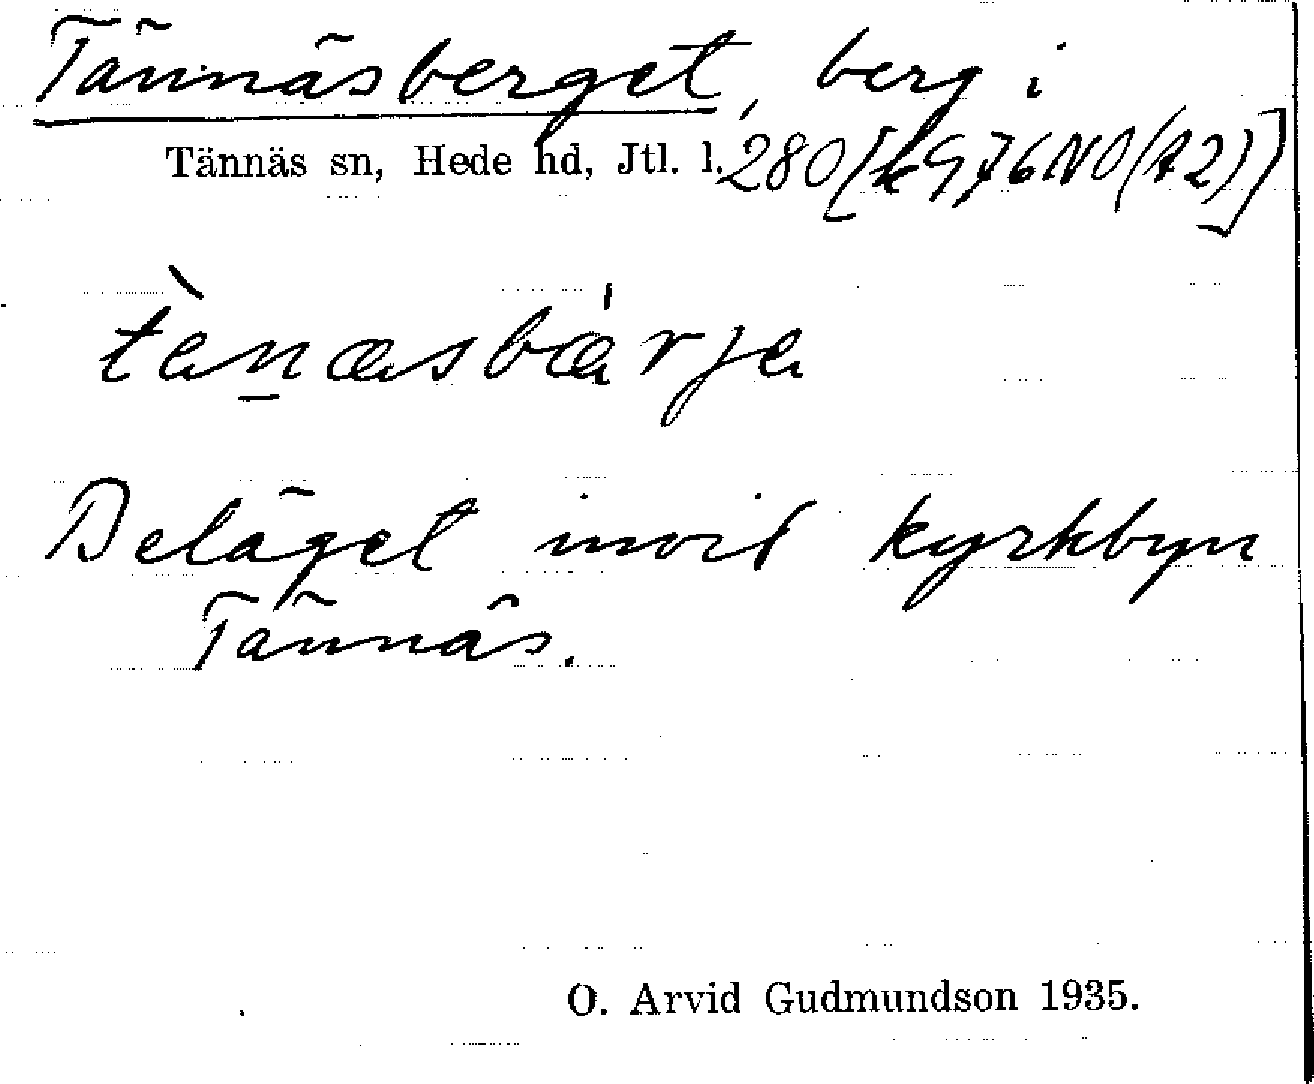 Tännäsberget, berg i
Tännäs sn, Hede hd, Jtl. l. 280 [k 976NO(A2)]
tènæsbǽrja
Beläget invid kyrkbyn
Tännäs.
O. Arvid Gudmundson 1935.